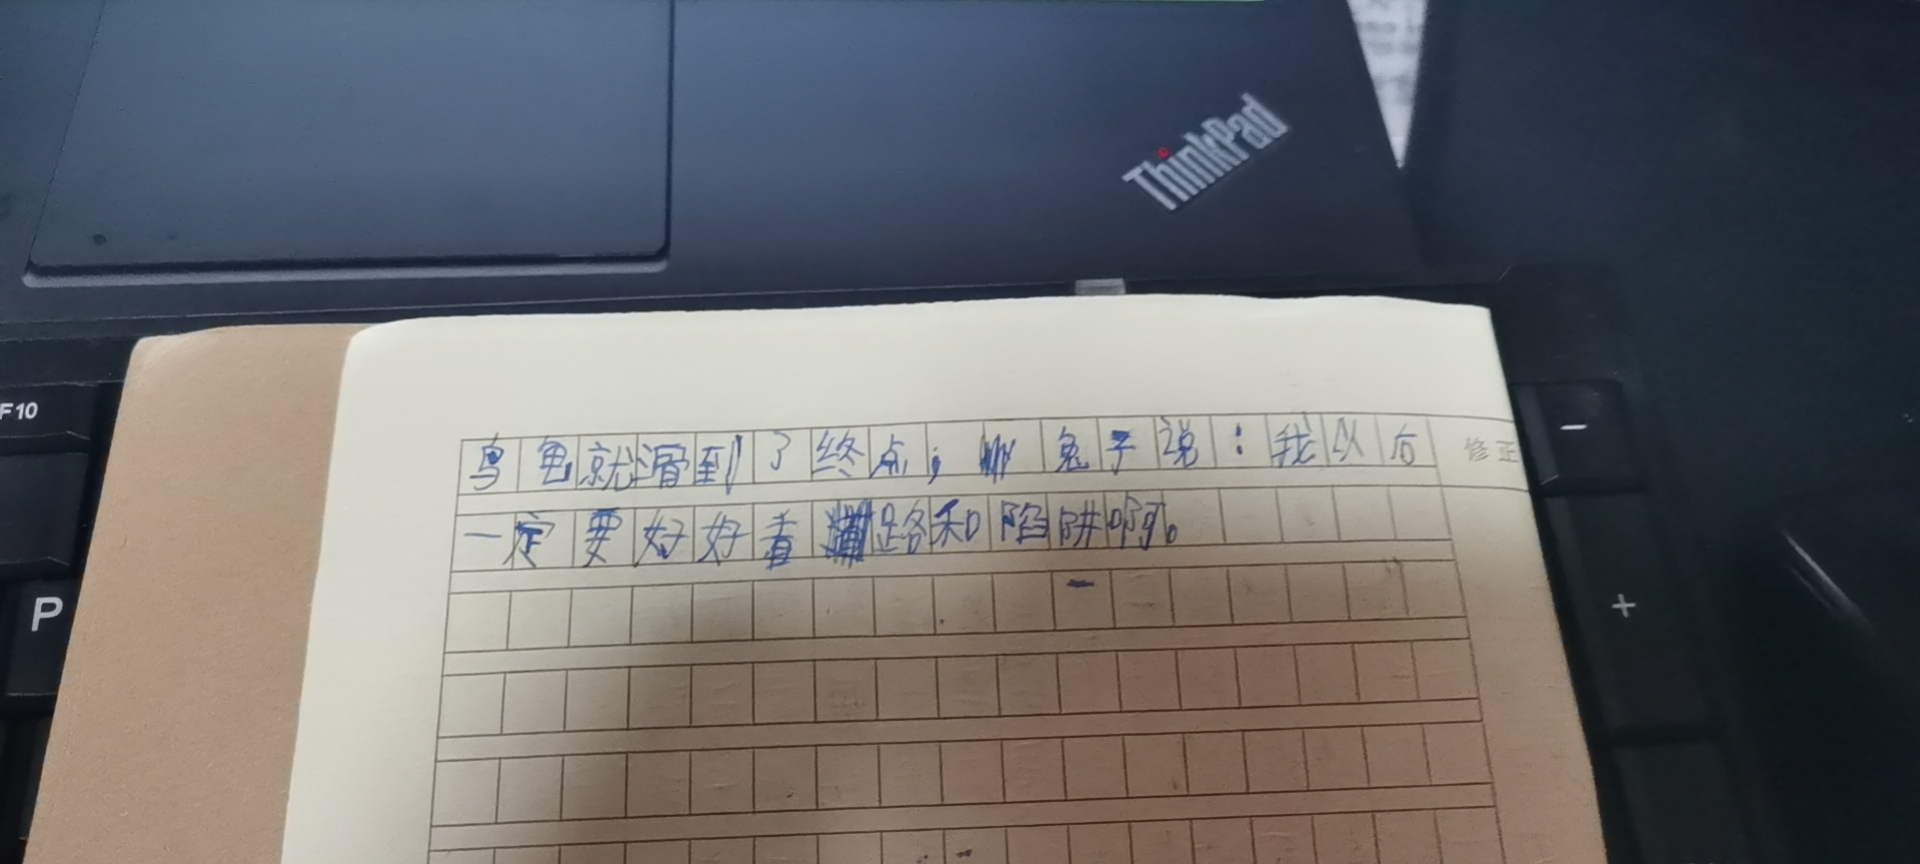 ThinkPad
F10
P
-
+
乌龟就滑到了终点；兔子说：我以后
修正
一定要好好看路和陷阱啊。